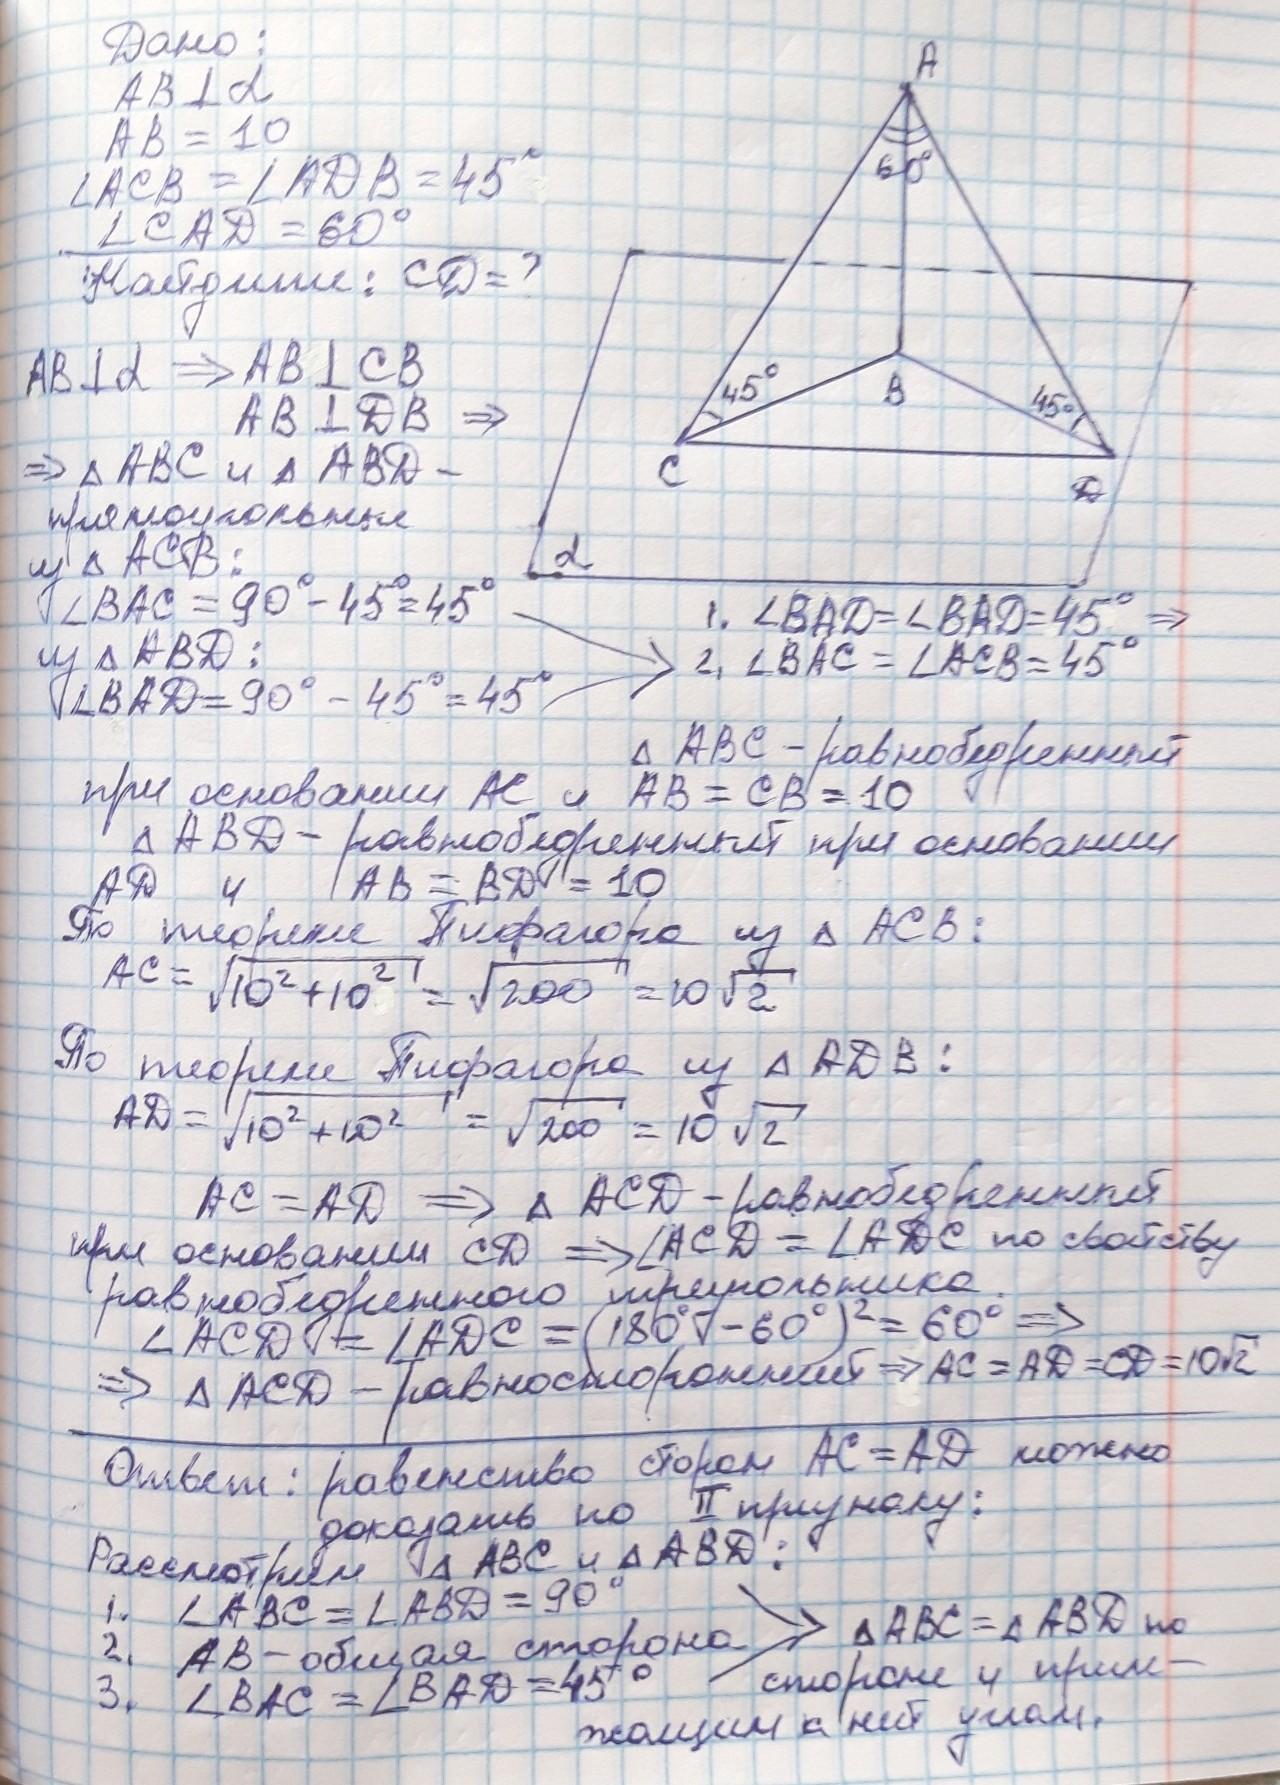 Дано:
AB⊥α
AB = 10
∠ACB = ∠ADB = 45°
∠CAD = 60°
Найдите: CD = ?
A
60°
45°
B
45°
C
D
α
AB⊥α ⇒ AB⊥CB
AB⊥DB ⇒
⇒ △ABC и △ABD –
прямоугольные
из △ACB:
∠BAC = 90° - 45° = 45°
из △ABD:
∠BAD = 90° - 45° = 45°
1. ∠BAD = ∠BAD = 45° ⇒
2. ∠BAC = ∠ACB = 45°
△ABC – равнобедренный
при основании AC и AB = CB = 10
△ABD – равнобедренный при основании
AD и AB = BD = 10
По теореме Пифагора из △ACB:
AC = √10² + 10² = √200 = 10√2
По теореме Пифагора из △ADB:
AD = √10² + 10² = √200 = 10√2
AC = AD ⇒ △ACD – равнобедренный
при основании CD ⇒ ∠ACD = ∠ADC по свойству
равнобедренного треугольника.
∠ACD = ∠ADC = (180° - 60°)² = 60° ⇒
⇒ △ACD – равносторонний ⇒ AC = AD = CD = 10√2
Ответ: равенство сторон AC = AD можно
доказать по II признаку:
Рассмотрим △ABC и △ABD:
1. ∠ABC = ∠ABD = 90°
2. AB – общая сторона
3. ∠BAC = ∠BAD = 45°
△ABC = △ABD по
стороне и прил–
жащим к ней углам.